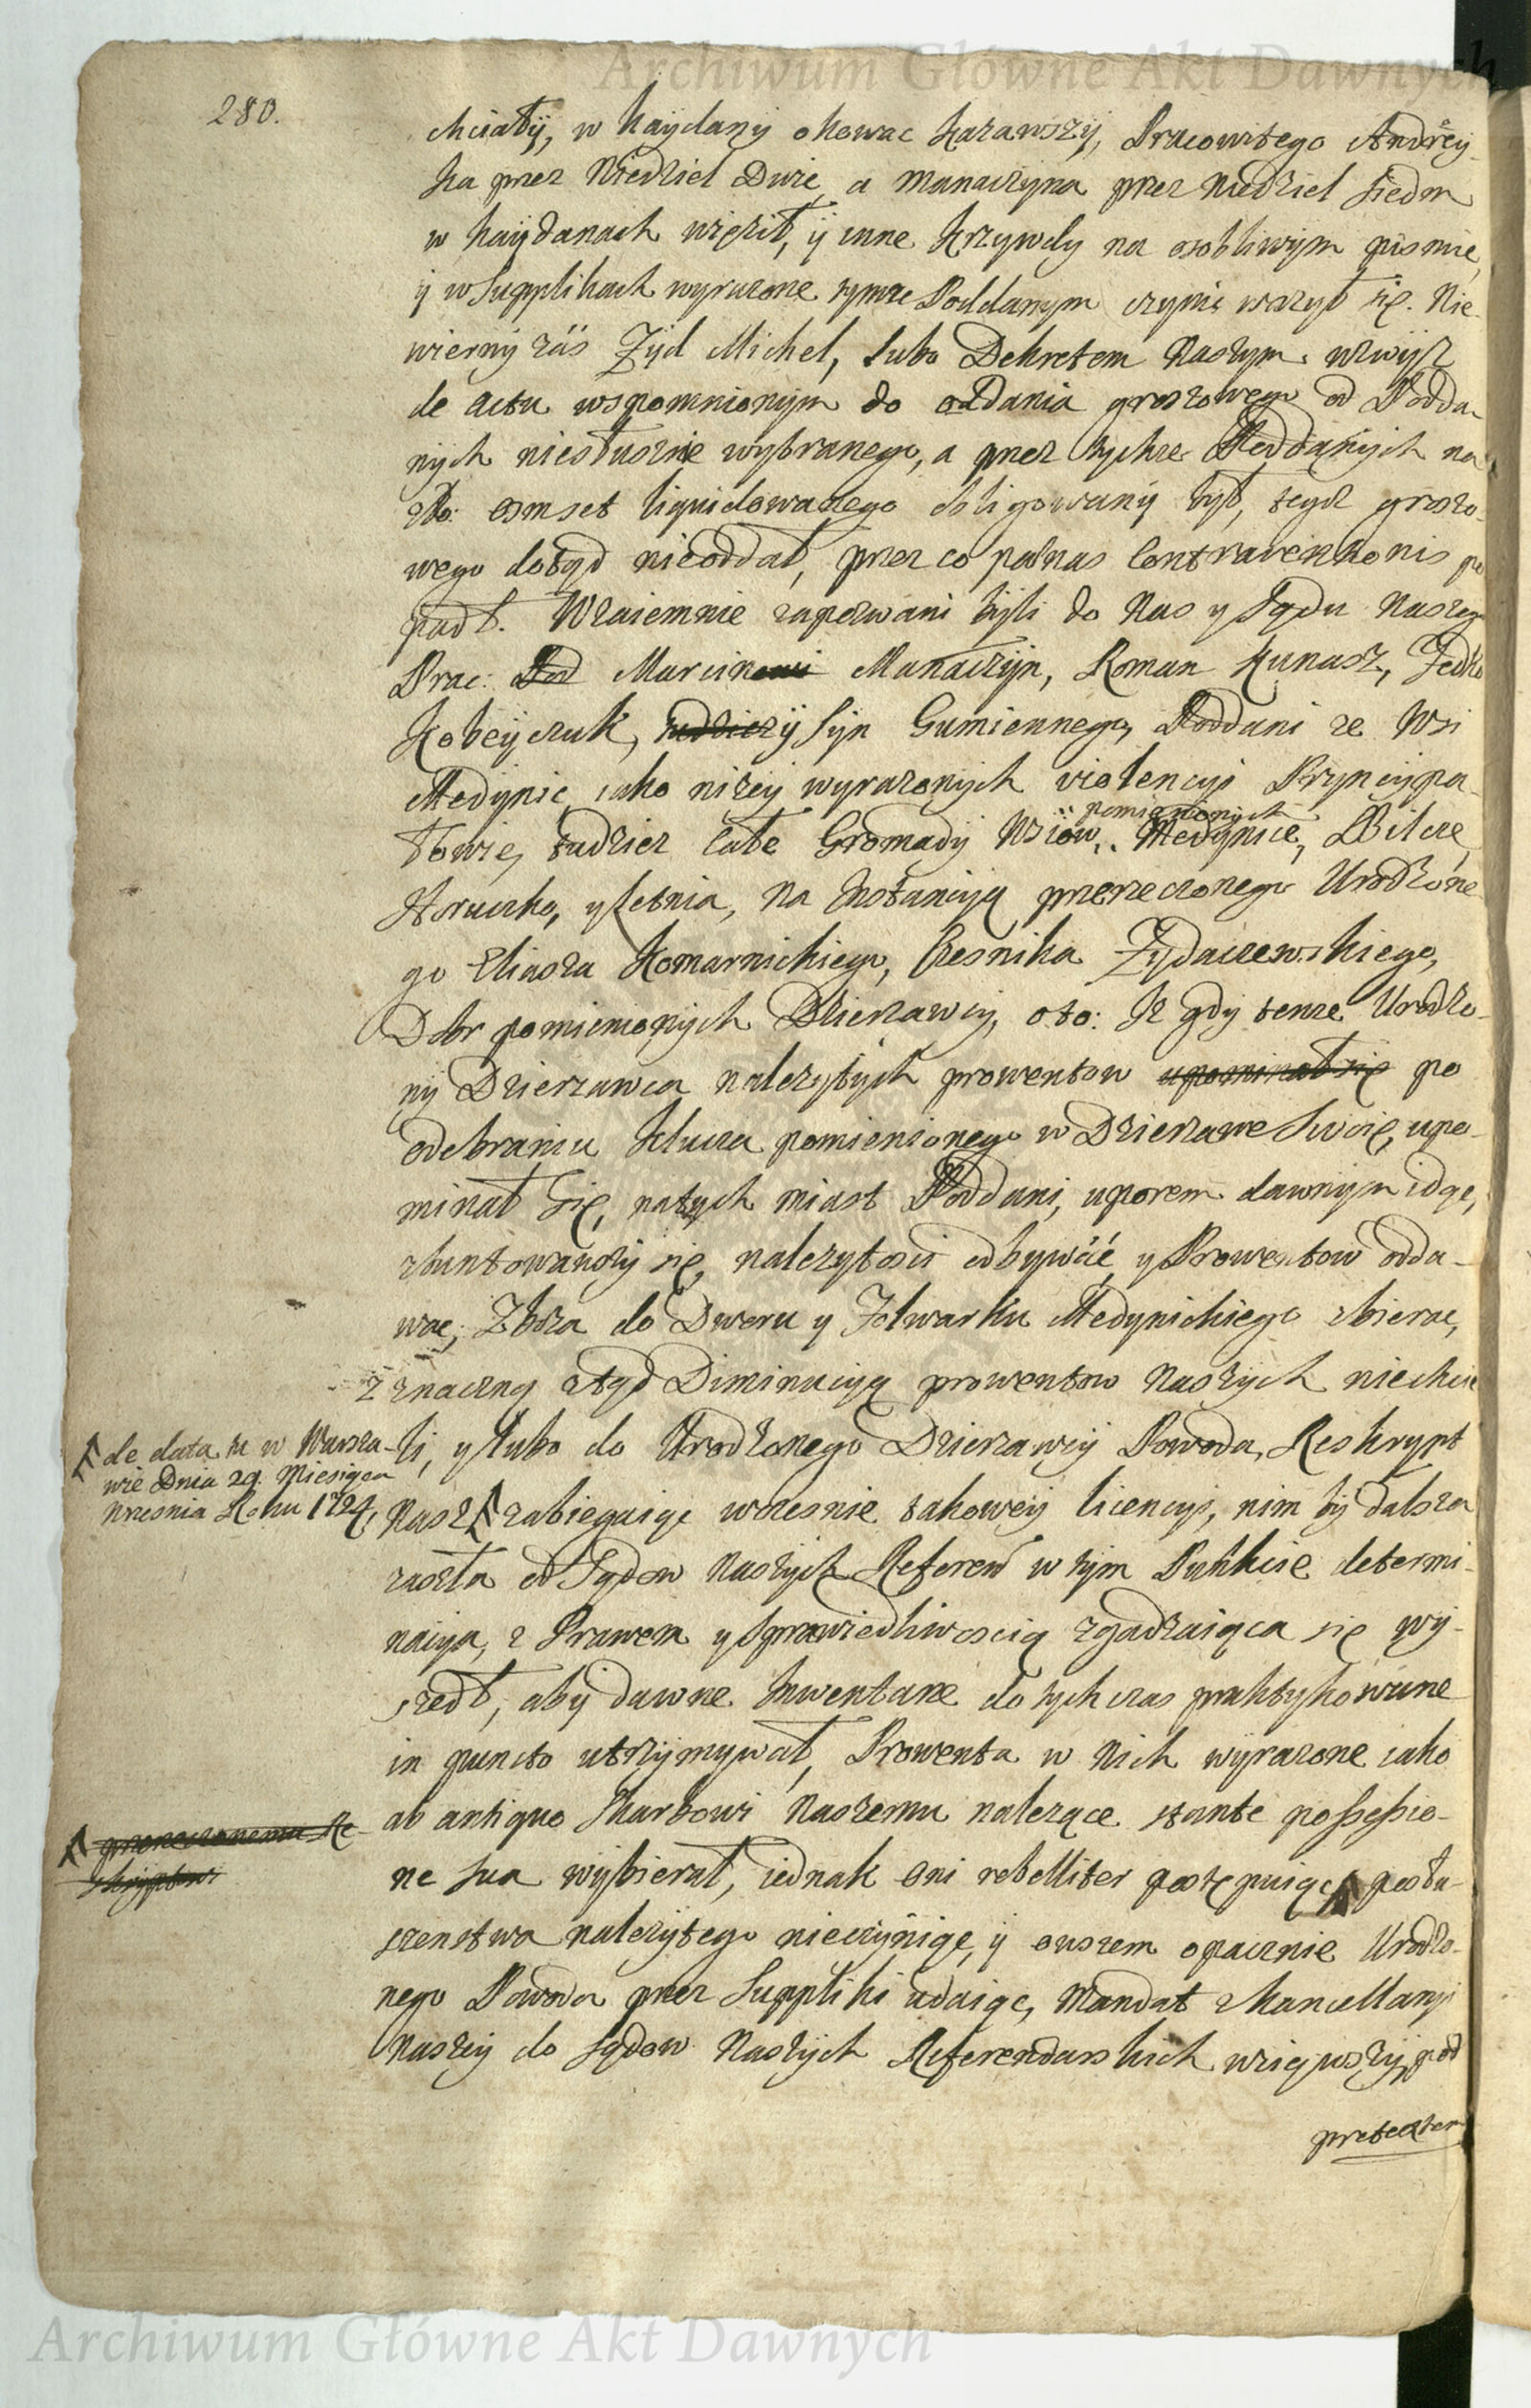 Archiwum Główne Akt Dawnych
280.
chciały, w kaydany okowac kazawszy, Pracowitego Andrey-
ka przez Niedziel Dwie, a Manaczyna przez niedziel siedm
w kaydanach więził, y inne krzywdy na osobliwym pismie,
y w Supplikach wyrazone tymze Poddanym czynic wazył się. Nie-
wierny zás Zyd Michel, lubo Dekretem Naszym, wzwysz
de actu wspomnionym do oddania groszowego od Podda-
nych niesłusznie wybranego, a przez tychze Poddanych na
zło: osmset liquidowanego obligowany był, tegoz groszo-
wego dotąd nieoddał, przez co pœnas Contraventionis po
padł. Wzaiemnie zapozwani byli do Nas y Sądu Naszego
Prac: Pod Marcinowi Manaczyn, Roman Kunasz, Fedko
Kobeyczuk, tudziezy syn Gumiennego, Poddani ze Wsi
Medynic, iako nizey wyrazonych violencyi Pryncypa-
łowie, tudziez całe Gromady Wsiow, pomienionych Medynice, Bilcze,
Horucko, y Letnia, na Instancyą przerzeczonego Urodzone-
go Eliasza Komarnickiego, Czesnika Zydaczewskiego,
Dobr pomienionych Dzierzawcy, oto: Iz gdy tenze Urodzo-
ny Dzierzawca nalezytych prowentow upominał się po
odebraniu Klucza pomienionego w Dzierzawe Swoię, upo-
minał Się, natych miast Poddani, uporem dawnym idąc,
zbuntowawszy się, nalezytosci odbywáć, y Prowentow odda-
wac, Zboza do Dworu y Folwarku Medynickiego zbierac,
z znaczną ztąd Diminucyą prowentow Naszych niechcie
li, y lubo do Urodzonego Dzierzawcy Powoda, Reskrypt
de data su w Warsza-
wie Dnia 29. Miesiąca
Wrzesnia Roku 1724,
Nasz zabiegaiąc wczesnie takowey licencyi, nim by dalsza
zaszła od Sądow Naszych Referen w tym Punkcie determi-
nacya, z Prawem y Sprawiedliwoscią zgadzaiąca się wy-
szedł, aby dawne Inwentarze do tych czas praktykowane
in puncto utrzymywał, Prowenta w Nich wyrazone iako
ab antiquo Skarbowi Naszemu nalezące stante possessio-
przerzeczonemu Re-
skryptowi
ne sua wybierał, iednak Oni rebelliter postępuiąc, posłu-
szenstwa nalezytego nieczyniąc, y owszem opacznie Urodzo-
nego Powoda przez Suppliki udaiąc, Mandat z Kancellaryi
Naszey do Sądow Naszych Referendarskich wziąwszy, pod
pretextem
Archiwum Główne Akt Dawnych